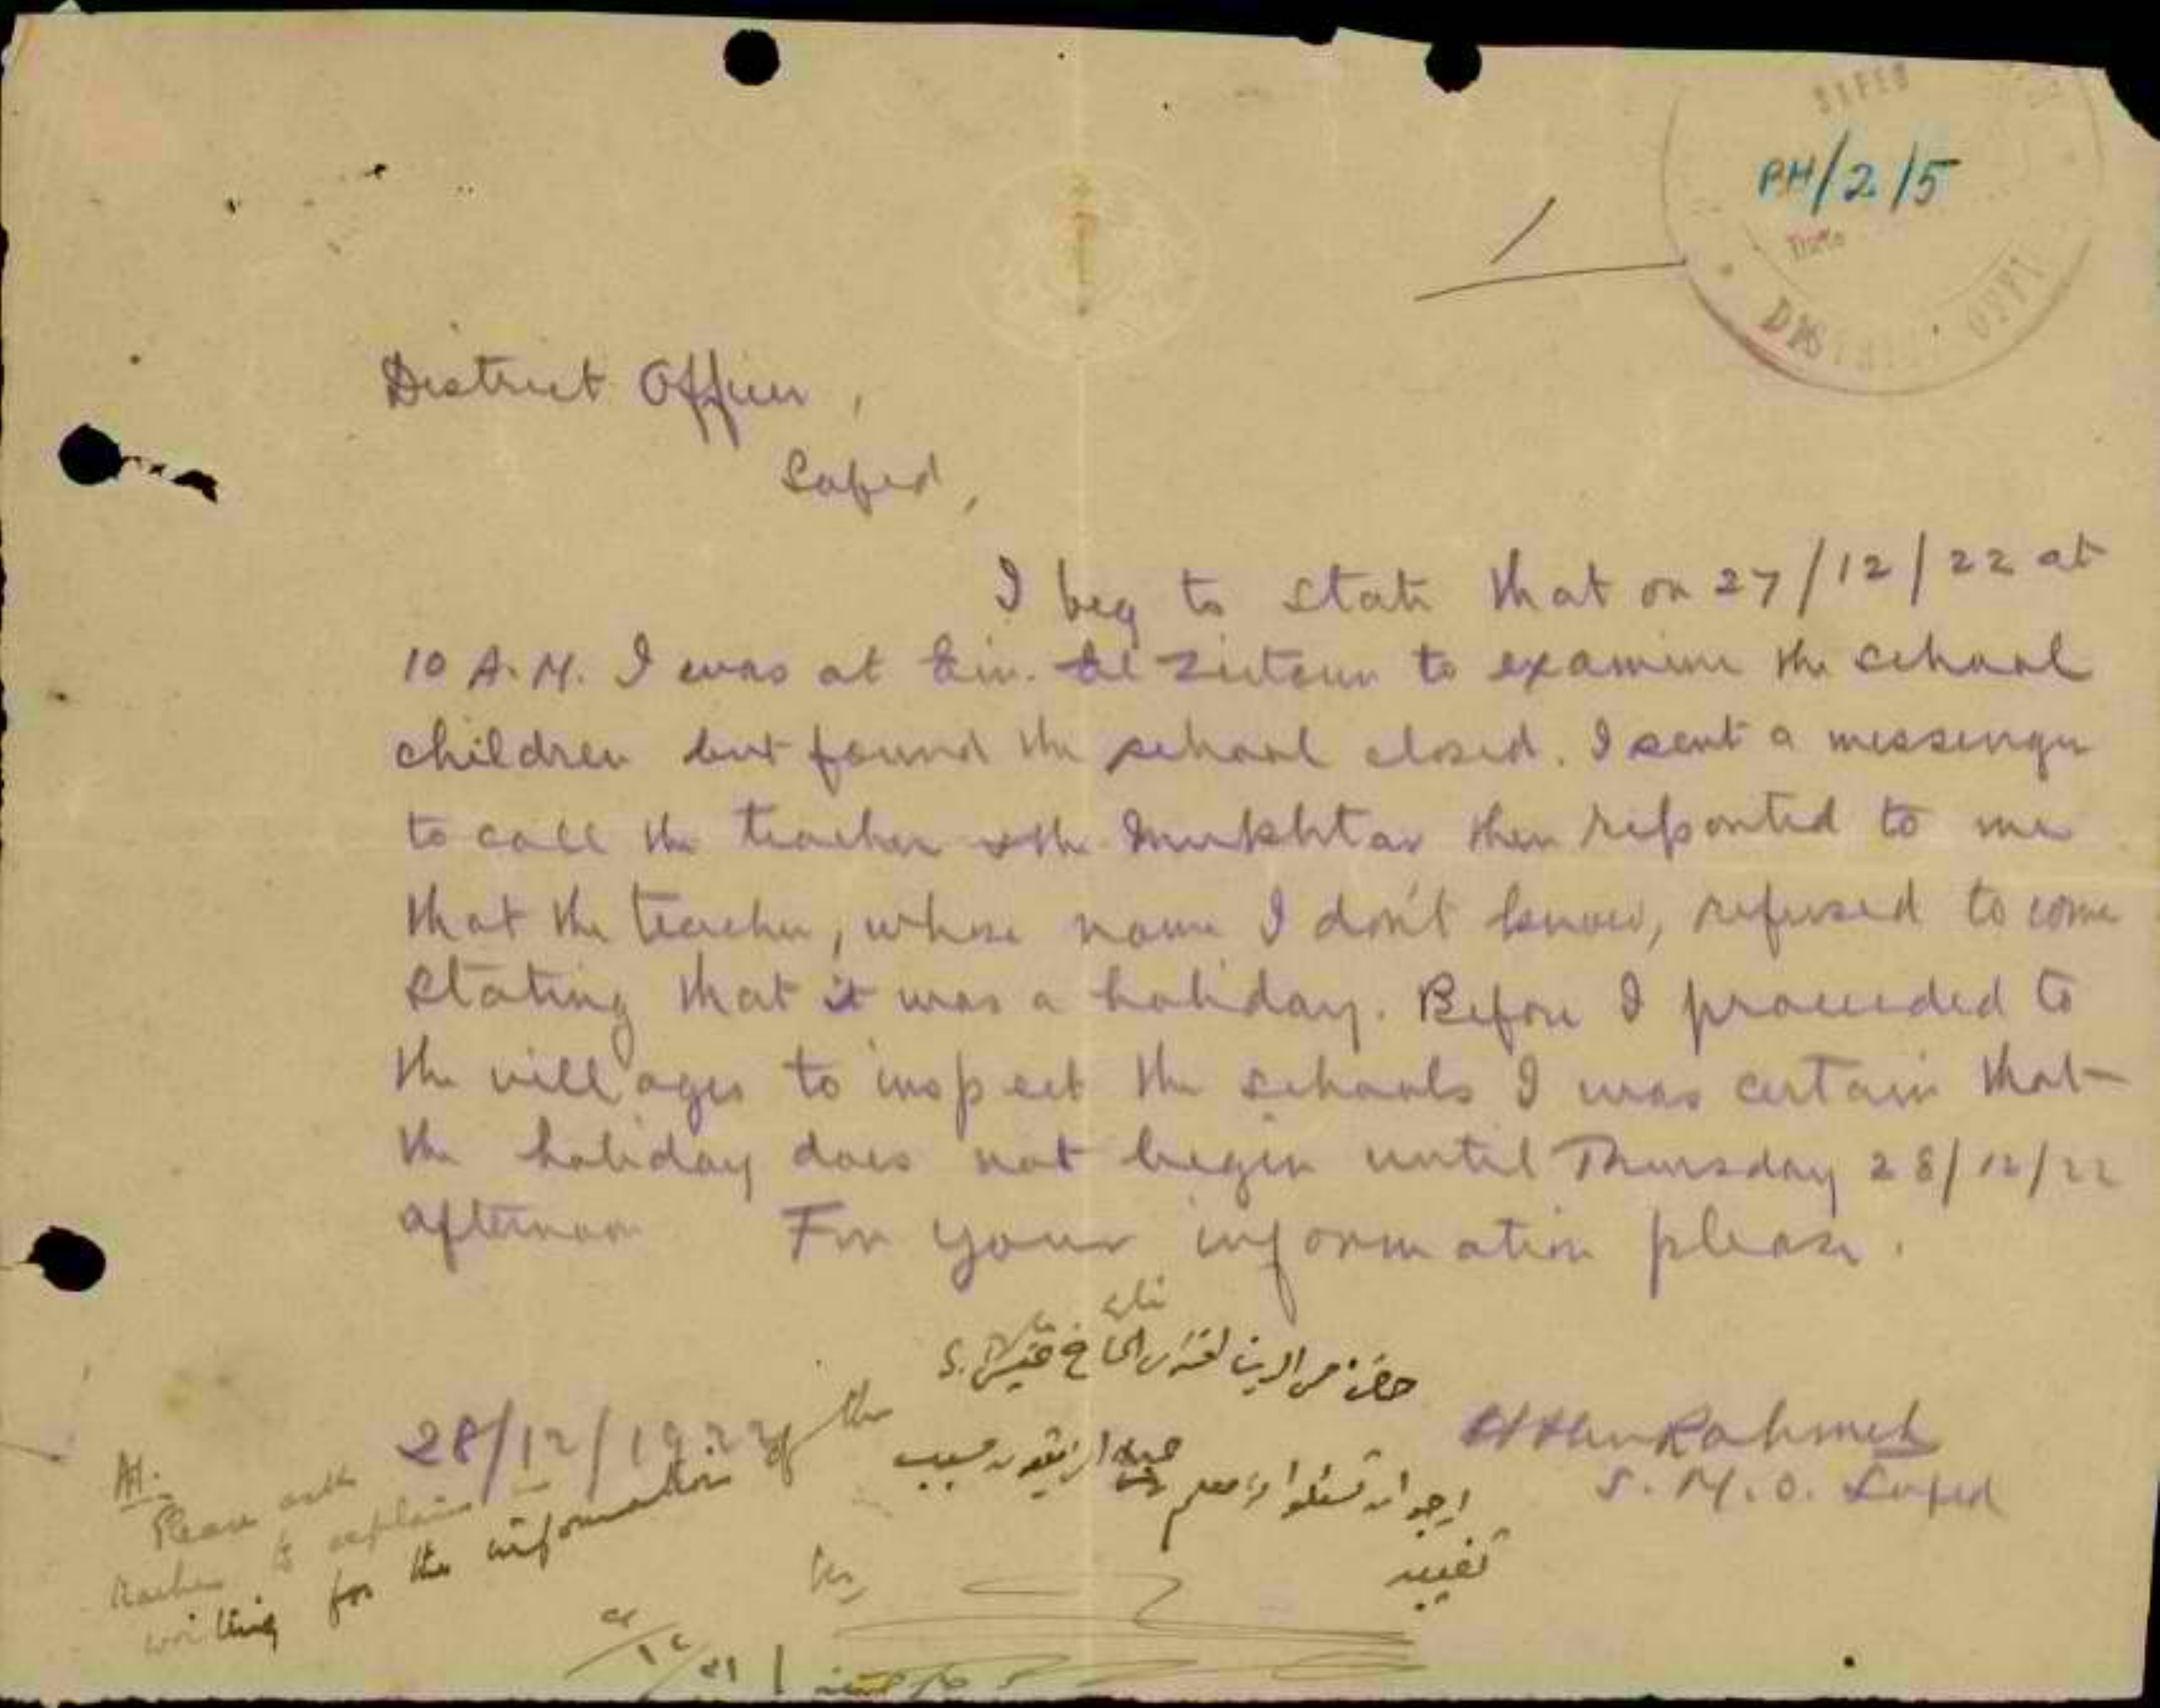 SAFED
PH/2/5
Date
DISTRICT
1
District Officer,
Safed,
I beg to state that on 27/12/22 at
10 A.M. I was at Ein. El Zeitoun to examine the school
children but found the school closed. I sent a messenger
to call the teacher & the Mukhtar then reported to me
that the teacher, whose name I don't know, refused to come
stating that it was a holiday. Before I proceeded to
the villages to inspect the schools I was certain that
the holiday does not begin until Thursday 28/12/22
afternoon For your information please.
28/12/1922
Rahmeh
S. M. O. Safed
Please ask the
teacher to explain in
writing for the information of
ارجو ان تسئلوا معلم سبب
تغيبه